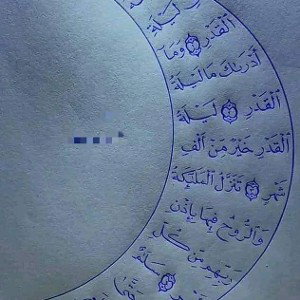 لَيْلَةِ
ٱلْقَدْرِ ۝ وَمَا
أَدْرَىٰكَ مَا لَيْلَةُ
ٱلْقَدْرِ ۝ لَيْلَةُ
ٱلْقَدْرِ خَيْرٌ مِّنْ أَلْفِ
شَهْرٍ ۝ تَنَزَّلُ ٱلْمَلَٰٓئِكَةُ
وَٱلرُّوحُ فِيهَا بِإِذْنِ
رَبِّهِم مِّن كُلِّ
۝ سَلَٰمٌ